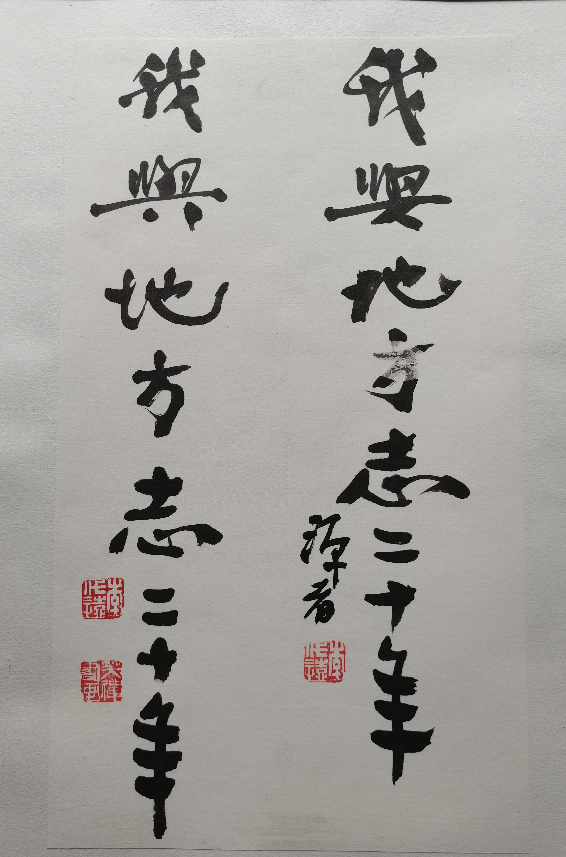 我與地方志二十年
我與地方志二十年